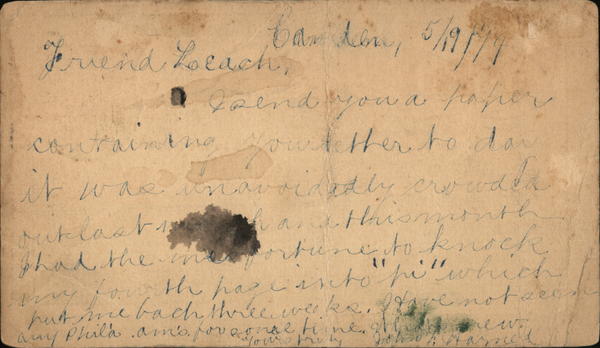 Camden, 5/19/77
Friend Leach,
I send you a paper
containing your letter to day
it was unavoidably crowded
out last month and this month
I had the misfortune to knock
my fourth page into "pi" which
put me back three weeks. Have not seen
any Phila. am's for some time. new.
Yours truly John